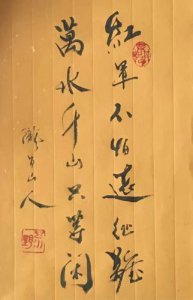 紅軍不怕遠征難
萬水千山只等閑
山人